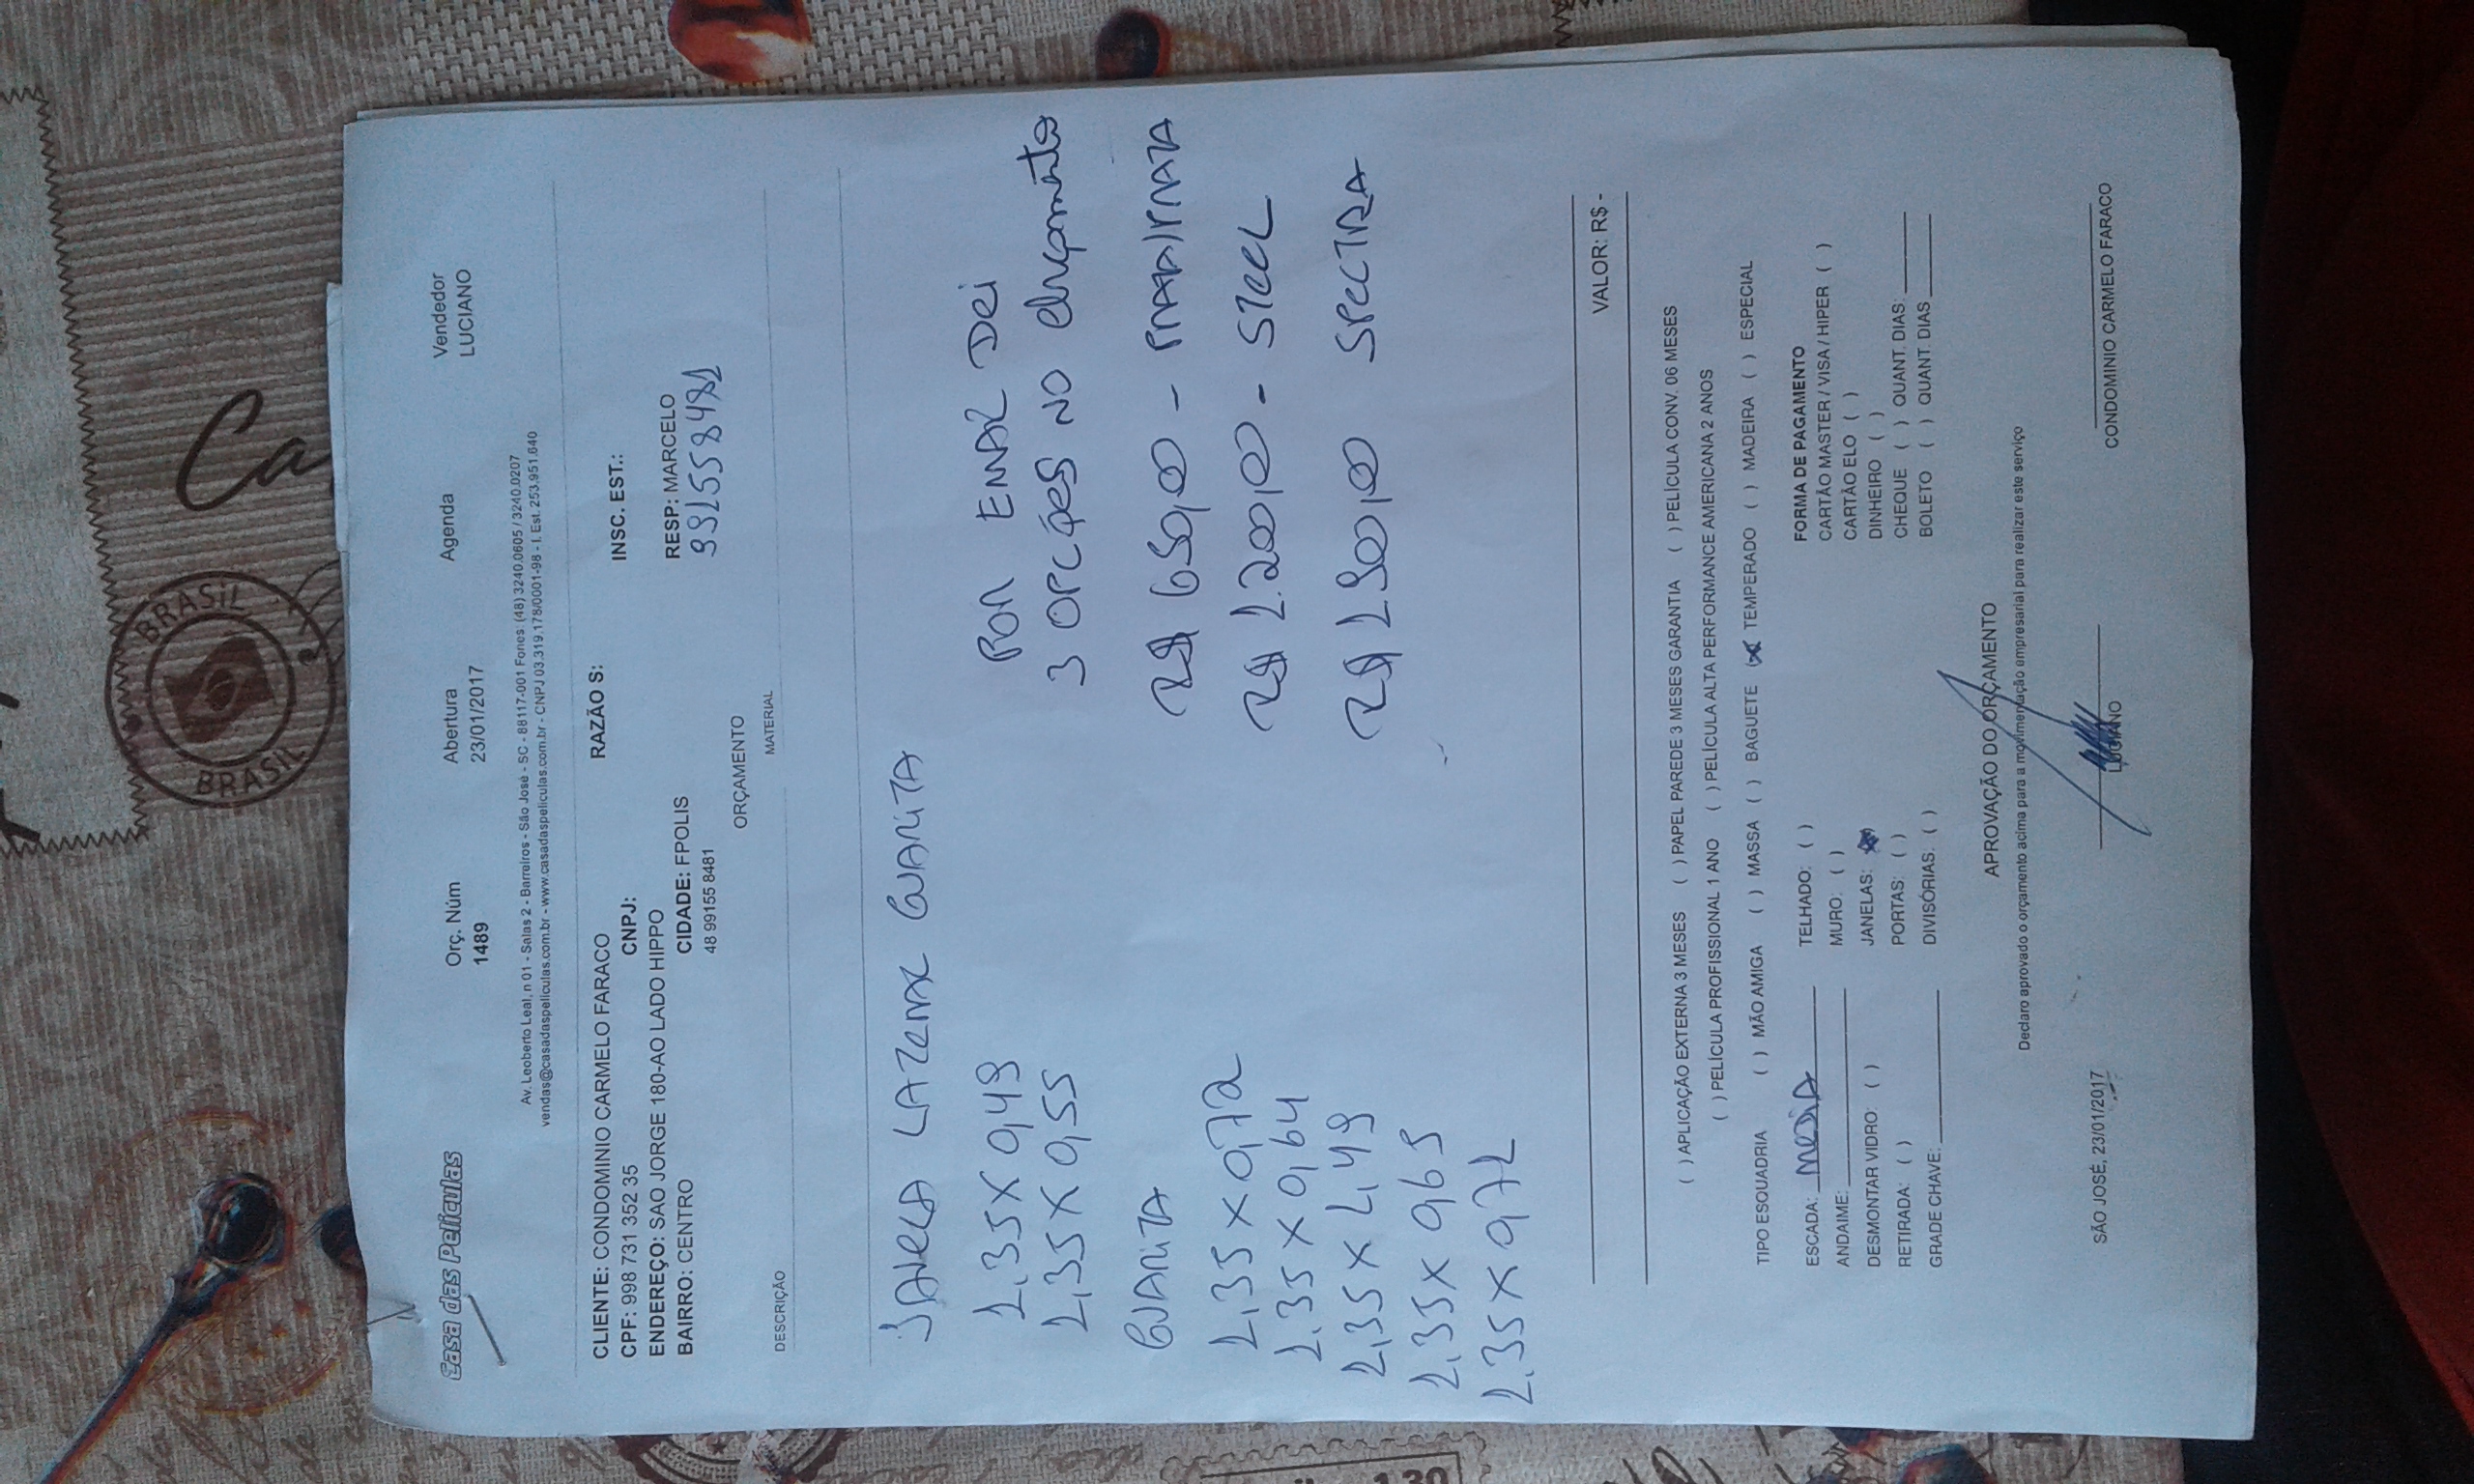 Casa das Películas
Orç. Núm
1489
Abertura
23/01/2017
Agenda
Vendedor
LUCIANO
Av. Leoberto Leal, n 01 - Salas 2 - Barreiros - São José - SC - 88117-001 Fones: (48) 3240.0605 / 3240.0207
vendas@casadaspeliculas.com.br - www.casadaspeliculas.com.br - CNPJ 03.319.178/0001-98 - I. Est. 253.951.640
CLIENTE: CONDOMINIO CARMELO FARACO RAZÃO S:
CPF: 998 731 352 35 CNPJ: INSC. EST.:
ENDEREÇO: SAO JORGE 180-AO LADO HIPPO
BAIRRO: CENTRO CIDADE: FPOLIS RESP: MARCELO
48 99155 8481 991558481
ORÇAMENTO
DESCRIÇÃO MATERIAL
JANELA LATERAL GUARITA
1,35 X 0,49
1,35 X 0,55
POR EMAIL DEI
3 OPCÕES NO ORÇAMENTO
GUARITA
1,35 X 0,72
1,35 X 0,64
1,35 X 1,49
1,35 X 0,65
1,35 X 0,71
R$ 650,00 - PRATA/PRATA
R$ 1.200,00 - STEEL
R$ 1.900,00 SPECTRA
VALOR: R$ -
( ) APLICAÇÃO EXTERNA 3 MESES ( ) PAPEL PAREDE 3 MESES GARANTIA ( ) PELÍCULA CONV. 06 MESES
( ) PELÍCULA PROFISSIONAL 1 ANO ( ) PELÍCULA ALTA PERFORMANCE AMERICANA 2 ANOS
TIPO ESQUADRIA ( ) MÃO AMIGA ( ) MASSA ( ) BAGUETE (X) TEMPERADO ( ) MADEIRA ( ) ESPECIAL
ESCADA: MEDIA TELHADO: ( )
ANDAIME: MURO: ( )
DESMONTAR VIDRO: ( ) JANELAS: (X)
RETIRADA: ( ) PORTAS: ( )
GRADE CHAVE: DIVISÓRIAS. ( )
FORMA DE PAGAMENTO
CARTÃO MASTER / VISA / HIPER ( )
CARTÃO ELO ( )
DINHEIRO ( )
CHEQUE ( ) QUANT. DIAS:
BOLETO ( ) QUANT. DIAS
APROVAÇÃO DO ORÇAMENTO
Declaro aprovado o orçamento acima para a movimentação empresarial para realizar este serviço
SÃO JOSÉ, 23/01/2017
LUCIANO
CONDOMINIO CARMELO FARACO
BRASIL
BRASIL
Ca
1,30